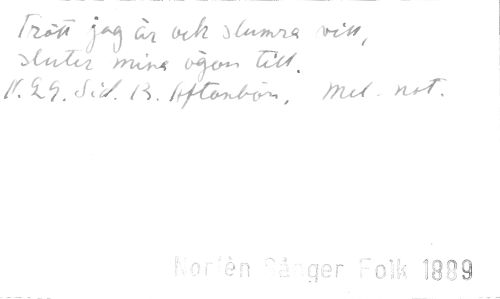 Trött jag är och slumra vill,
sluter mina ögon till.
N. 29. Sid. 13. Aftonbön. Mel. not.
Norlén Sånger Folk 1889